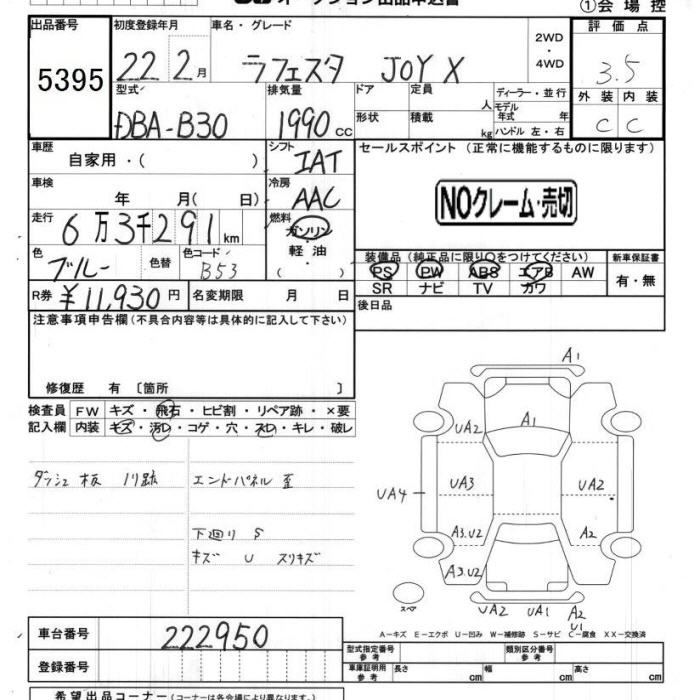 オークション出品申込書 ①会場控
出品番号 初度登録年月 車名・グレード 2WD・4WD 評価点
5395 22 2月 ラフェスタ JOY X 3.5
型式 排気量 ドア 定員 人 ディーラー・並行 外装 内装
DBA-B30 1990cc 形状 積載 kg モデル年式 年 ハンドル 左・右 C C
車歴 シフト セールスポイント (正常に機能するものに限ります)
自家用・( ) IAT
車検 冷房
年 月( 日) AAC NOクレーム・売切
走行 燃料
6万3千291km ガソリン
色 色替 色コード 軽・油 装備品(純正品に限り○をつけてください) 新車保証書
ブルー B53 ( ) PS PW ABS エアB AW 有・無
R券 ¥11,930円 名変期限 月 日 SR ナビ TV カワ
注意事項申告欄(不具合内容等は具体的に記入して下さい) 後日品
修復歴 有 〔箇所 〕
検査員 FW キズ・飛石・ヒビ割・リペア跡・×要
記入欄 内装 キズ・汚レ・コゲ・穴・スレ・キレ・破レ
ダッシュ板 ノリ跡 エンドパネル 歪
下廻り S
キズ U スリキズ
A1
A1
UA2
UA3 UA2
UA4
A3.U2 A2
A3.U2
スペア UA2 UA1 A2
U1
A-キズ E-エクボ U-凹み W-補修跡 S-サビ C-腐食 XX-交換済
車台番号 222950
型式指定番号 参考 類別区分番号 参考
登録番号 車庫証明用 参考 長さ cm 幅 cm 高さ cm
希望出品コーナー(コーナーは各会場により異なります。)